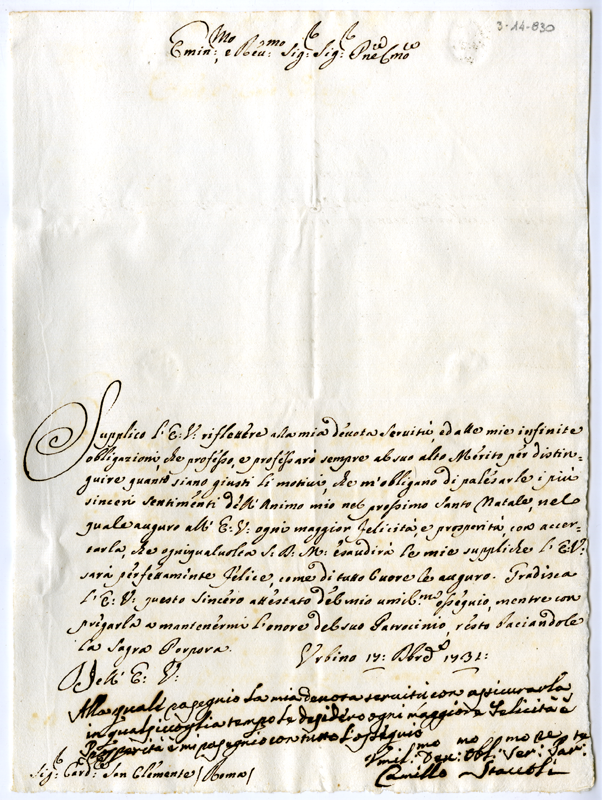 3-14-830
Emin:mo, e Reu:mo Sig:r Sig:r Pne Cmo
Supplico l'E: V: riflettere alla mia deuota seruitù, ed alle mie infinite
obligazioni, che professo, e professarò sempre al suo alto Merito per distin=
guire quanto siano giusti li motiui, che m'obligano di palesarle i più
sinceri sentimenti dell'Animo mio nel prossimo Santo Natale, nel
quale auguro all'E: V: ogni maggior felicità, e prosperità, con accer=
tarla, che ogniqualuolta S. D: M: esaudirà le mie suppliche l'E: V:
sarà perfettamente felice, come di tutto Cuore le auguro. Gradisca
l'E: V: questo sincero attestato del mio umil:mo ossequio, mentre con
pregarla a mantenermi l'onore del suo Patrocinio, resto baciandole
la Sagra Porpora. Urbino 17: Xbre 1731:
Dell'E: V:
Alla quali rasegnio la mia deuota seruitù con assicurarla,
in qualsiuoglia tempo le desidero ogni maggiore Felicità e
Prosperità e mi rasegnio con tutto l'ossequio
Umil:mo Deu:mo Obl:mo Ser:
Sig:r Card: San Clemente / Roma / Camillo Staccoli